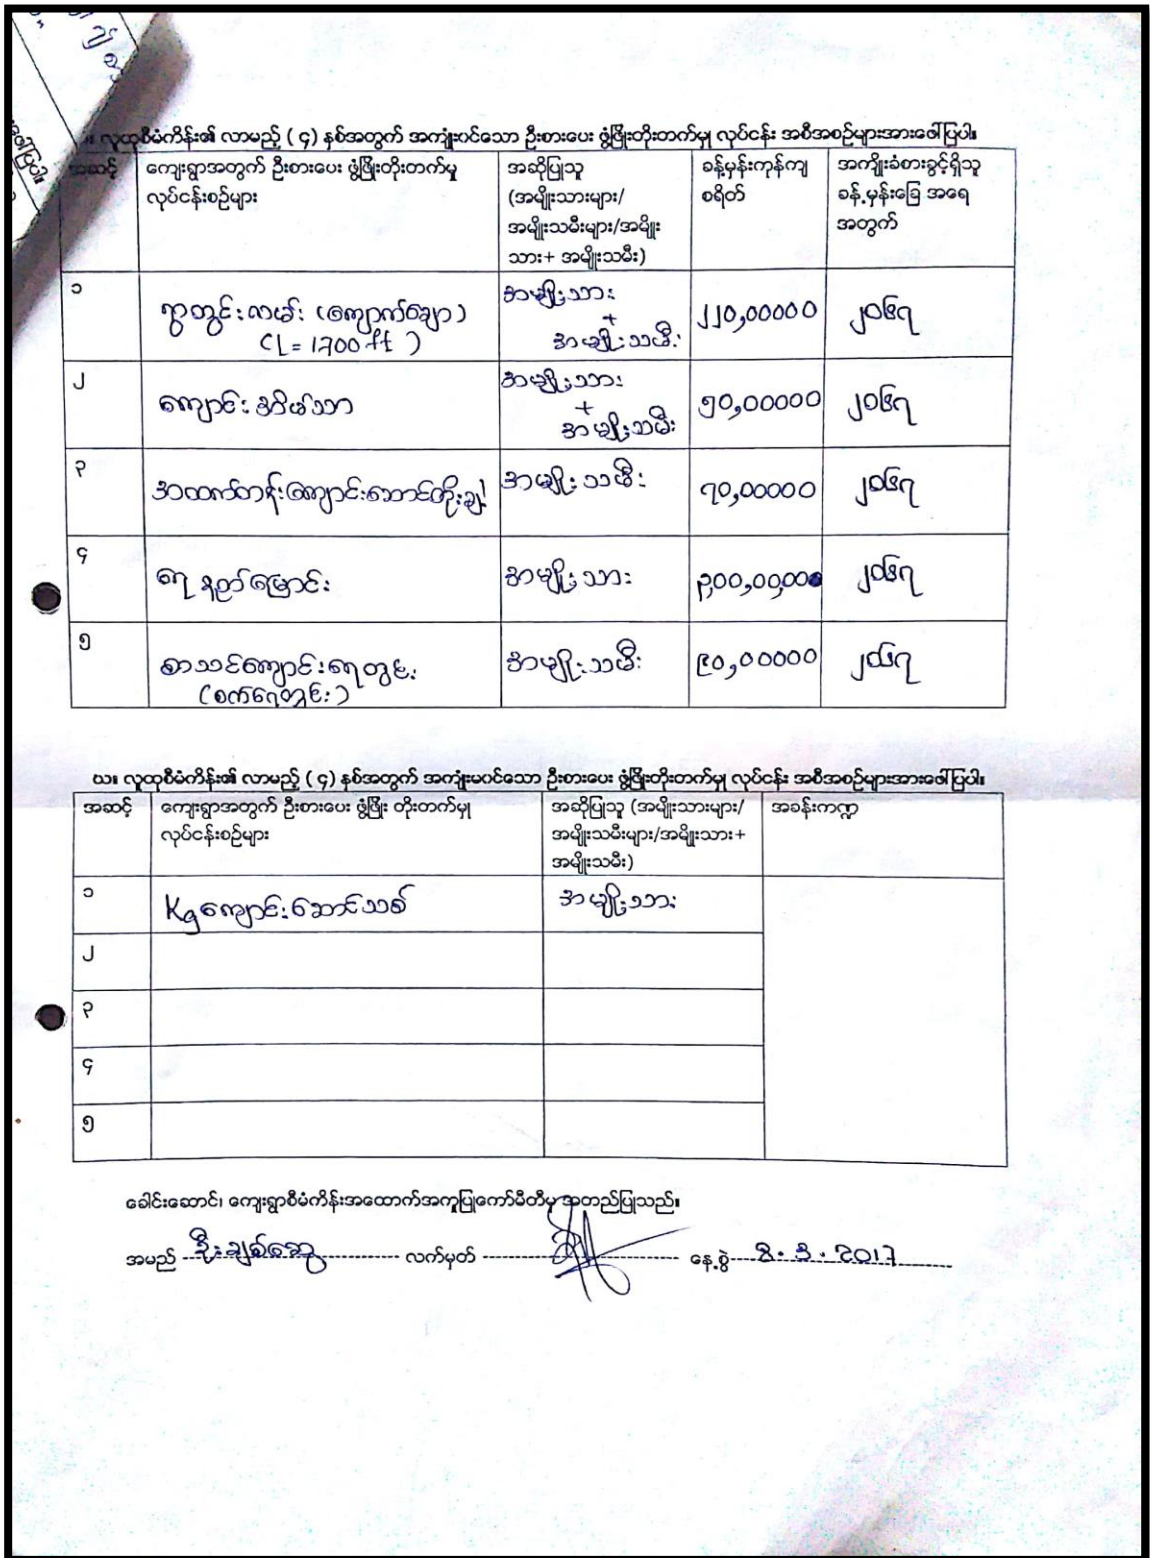 ။ လူထုစီမံကိန်း၏ လာမည့် ( ၄) နှစ်အတွက် အကျုံးဝင်သော ဦးစားပေး ဖွံ့ဖြိုးတိုးတက်မှု လုပ်ငန်း အစီအစဉ်များအားဖော်ပြပါ။
အဆင့် ကျေးရွာအတွက် ဦးစားပေး ဖွံဖြိုးတိုးတက်မှု လုပ်ငန်းစဉ်များ အဆိုပြုသူ (အမျိုးသားများ/ အမျိုးသမီးများ/အမျိုး သား+ အမျိုးသမီး) ခန့်မှန်းကုန်ကျ စရိတ် အကျိုးခံစားခွင့်ရှိသူ ခန့်မှန်းခြေ အရေ အတွက်
၁ ရွာတွင်းလမ်း (ကျောက်ချော) (L = 1700 ft ) အမျိုးသား + အမျိုးသမီး ၂၂၀,၀၀၀၀၀ ၂၀၆၇
၂ ကျောင်းအိမ်သာ အမျိုးသား + အမျိုးသမီး ၅၀,၀၀၀၀၀ ၂၀၆၇
၃ အထက်တန်းကျောင်းဆောင်တိုးချဲ့ အမျိုးသမီး ၇၀,၀၀၀၀၀ ၂၀၆၇
၄ ရေနုတ်မြောင်း အမျိုးသား ၃၀၀,၀၀,၀၀၀ ၂၀၆၇
၅ စာသင်ကျောင်းရေတွင်း (စက်ရေတွင်း) အမျိုးသမီး ၉၀,၀၀၀၀၀ ၂၀၆၇
ဃ။ လူထုစီမံကိန်း၏ လာမည့် ( ၄) နှစ်အတွက် အကျုံးမဝင်သော ဦးစားပေး ဖွံ့ဖြိုးတိုးတက်မှု လုပ်ငန်း အစီအစဉ်များအားဖော်ပြပါ။
အဆင့် ကျေးရွာအတွက် ဦးစားပေး ဖွံဖြိုး တိုးတက်မှု လုပ်ငန်းစဉ်များ အဆိုပြုသူ (အမျိုးသားများ/ အမျိုးသမီးများ/အမျိုးသား+ အမျိုးသမီး) အခန်းကဏ္ဍ
၁ Kgကျောင်းဆောင်သစ် အမျိုးသား
၂
၃
၄
၅
ခေါင်းဆောင်၊ ကျေးရွာစီမံကိန်းအထောက်အကူပြုကော်မီတီမှ အတည်ပြုသည်။
အမည် ဦးချစ်ဆွေ လက်မှတ် နေ့စွဲ 8.3.2017